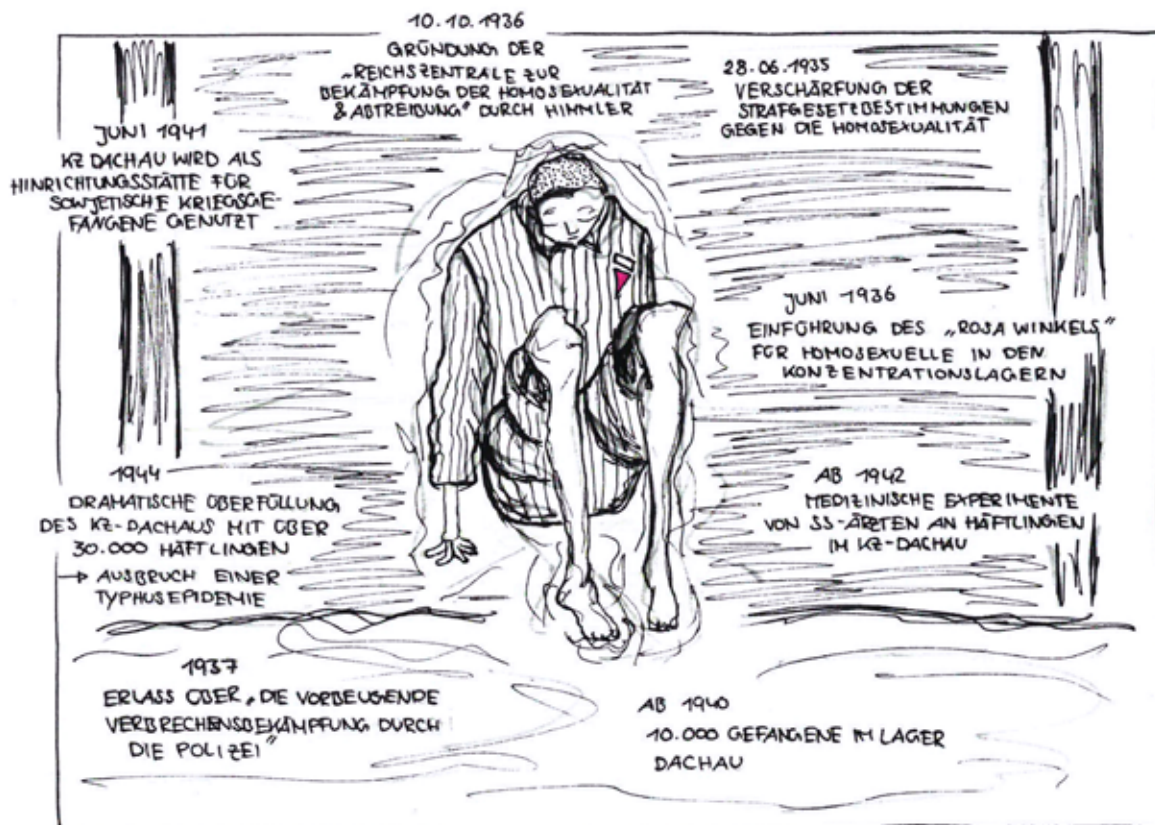 10.10.1936
GRÜNDUNG DER
„REICHSZENTRALE ZUR
BEKÄMPFUNG DER HOMOSEXUALITÄT
& ABTREIBUNG" DURCH HIMMLER
28.06.1935
VERSCHÄRFUNG DER
STRAFGESETZBESTIMMUNGEN
GEGEN DIE HOMOSEXUALITÄT
JUNI 1941
KZ DACHAU WIRD ALS
HINRICHTUNGSSTÄTTE FÜR
SOWJETISCHE KRIEGSGE-
FANGENE GENUTZT
JUNI 1936
EINFÜHRUNG DES „ROSA WINKELS"
FÜR HOMOSEXUELLE IN DEN
KONZENTRATIONSLAGERN
1944
DRAMATISCHE ÜBERFÜLLUNG
DES KZ-DACHAUS MIT ÜBER
30.000 HÄFTLINGEN
→ AUSBRUCH EINER
TYPHUSEPIDEMIE
AB 1942
MEDIZINISCHE EXPERIMENTE
VON SS-ÄRZTEN AN HÄFTLINGEN
IM KZ-DACHAU
1937
ERLASS ÜBER „DIE VORBEUGENDE
VERBRECHENSBEKÄMPFUNG DURCH
DIE POLIZEI"
AB 1940
10.000 GEFANGENE IM LAGER
DACHAU